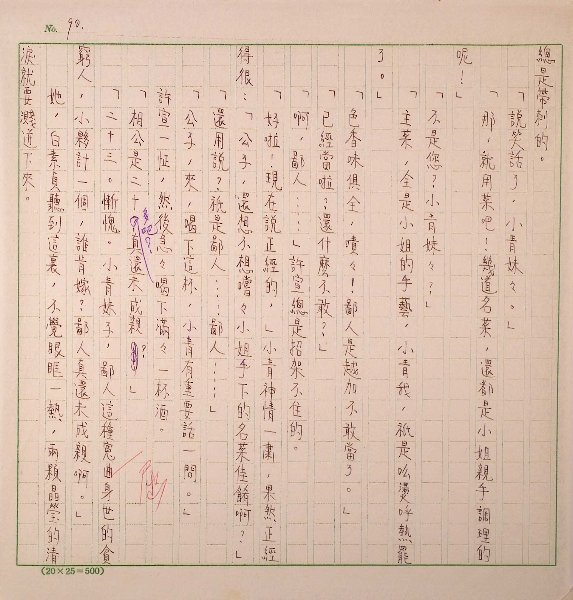 No. 90.
總是帶刺的。
「說笑話了，小青妹々。」
「那，就用菜吧！幾道名菜，還都是小姐親手調理的
呢！」
「不是您？小青妹々？」
「主菜，全是小姐的手藝，小青我，祇是吆燙呼熱罷
了。」
「色香味俱全，嘖々！鄙人是越加不敢當了。」
「已經當啦？還什麼不敢？」
「啊，鄙人……」許宣總是招架不住的。
「好啦！現在說正經的，」小青神情一肅，果然正經
得很：「公子，還想不想嚐々小姐手下的名菜佳餚啊？」
「還用說？祇是鄙人……鄙人……」
「公子，來，喝下這杯，小青有重要話一問。」
許宣一怔，然後急々喝下滿々一杯酒。
「相公是二十多吧？真還未成親？」
「二十三。慚愧。小青妹子，鄙人這種 曲身世的貧
窮人，小夥計一個，誰肯嫁？鄙人真還未成親啊。」
她，白素貞聽到這裏，不覺眼眶一熱，兩顆晶瑩的清
淚就要濺迸下來。
(20×25=500)